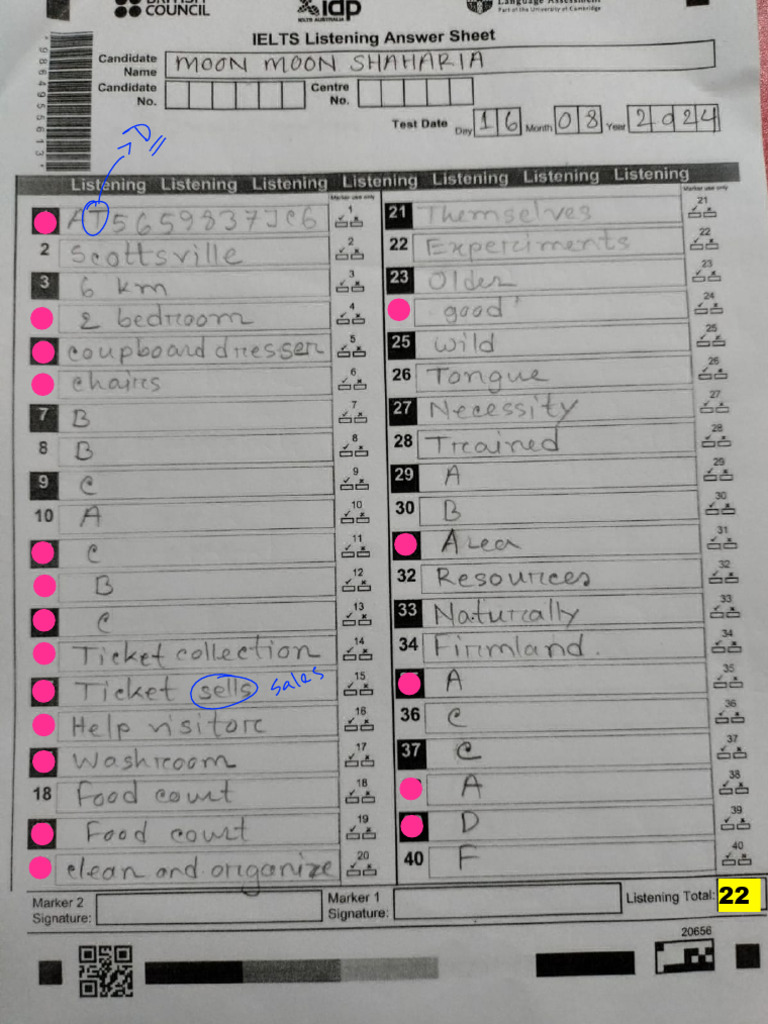 BRITISH
COUNCIL
idp
IELTS AUSTRALIA
Language Assessment
Part of the University of Cambridge
IELTS Listening Answer Sheet
Candidate Name
MOON MOON SHAHARIA
Candidate No.
Centre No.
Test Date Day 16 Month 08 Year 2024
* 9 8 6 4 9 5 5 6 1 3 *
D
Listening Listening Listening Listening Listening Listening Listening
Marker use only
AT5659837JC6 1
2 Scottsville 2
3 6 km 3
2 bedroom 4
coupboard dresser 5
chairs 6
7 B 7
8 B 8
9 C 9
10 A 10
C 11
B 12
C 13
Ticket collection 14
Ticket sells sales 15
Help visitorc 16
Washroom 17
18 Food court 18
Food court 19
clean and organize 20
Marker use only
21 Themselves 21
22 Experciments 22
23 Older 23
good' 24
25 wild 25
26 Tongue 26
27 Necessity 27
28 Trained 28
29 A 29
30 B 30
Area 31
32 Resources 32
33 Naturally 33
34 Firmland. 34
A 35
36 C 36
37 C 37
A 38
D 39
40 F 40
Marker 2 Signature:
Marker 1 Signature:
Listening Total: 22
20656